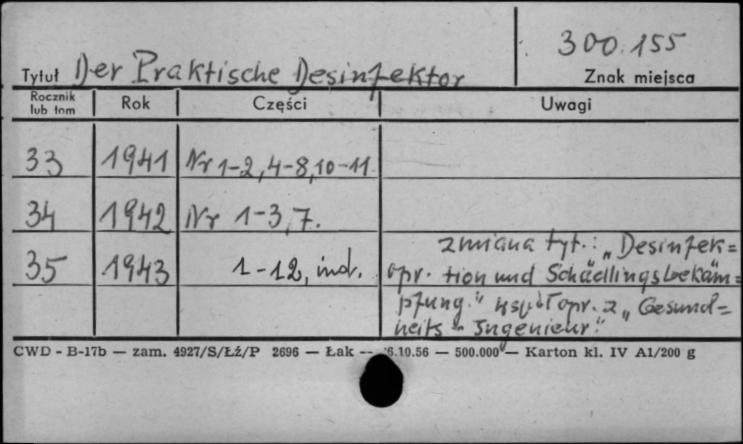 300.155
Tytuł Der Praktische Desinfektor Znak miejsca
Rocznik lub tom Rok Części Uwagi
33 1941 Nr 1-2, 4-8, 10-11
34 1942 Nr 1-3, 7.
zmiana tyt.: „Desinfek=
35 1943 1-12, ind. opr. tion und Schädlingsbekäm=
pfung." współopr. z „Gesund=
heits-Ingenieur."
CWD - B-17b — zam. 4927/S/Łź/P 2696 — Łak — 6.10.56 — 500.000 — Karton kl. IV A1/200 g